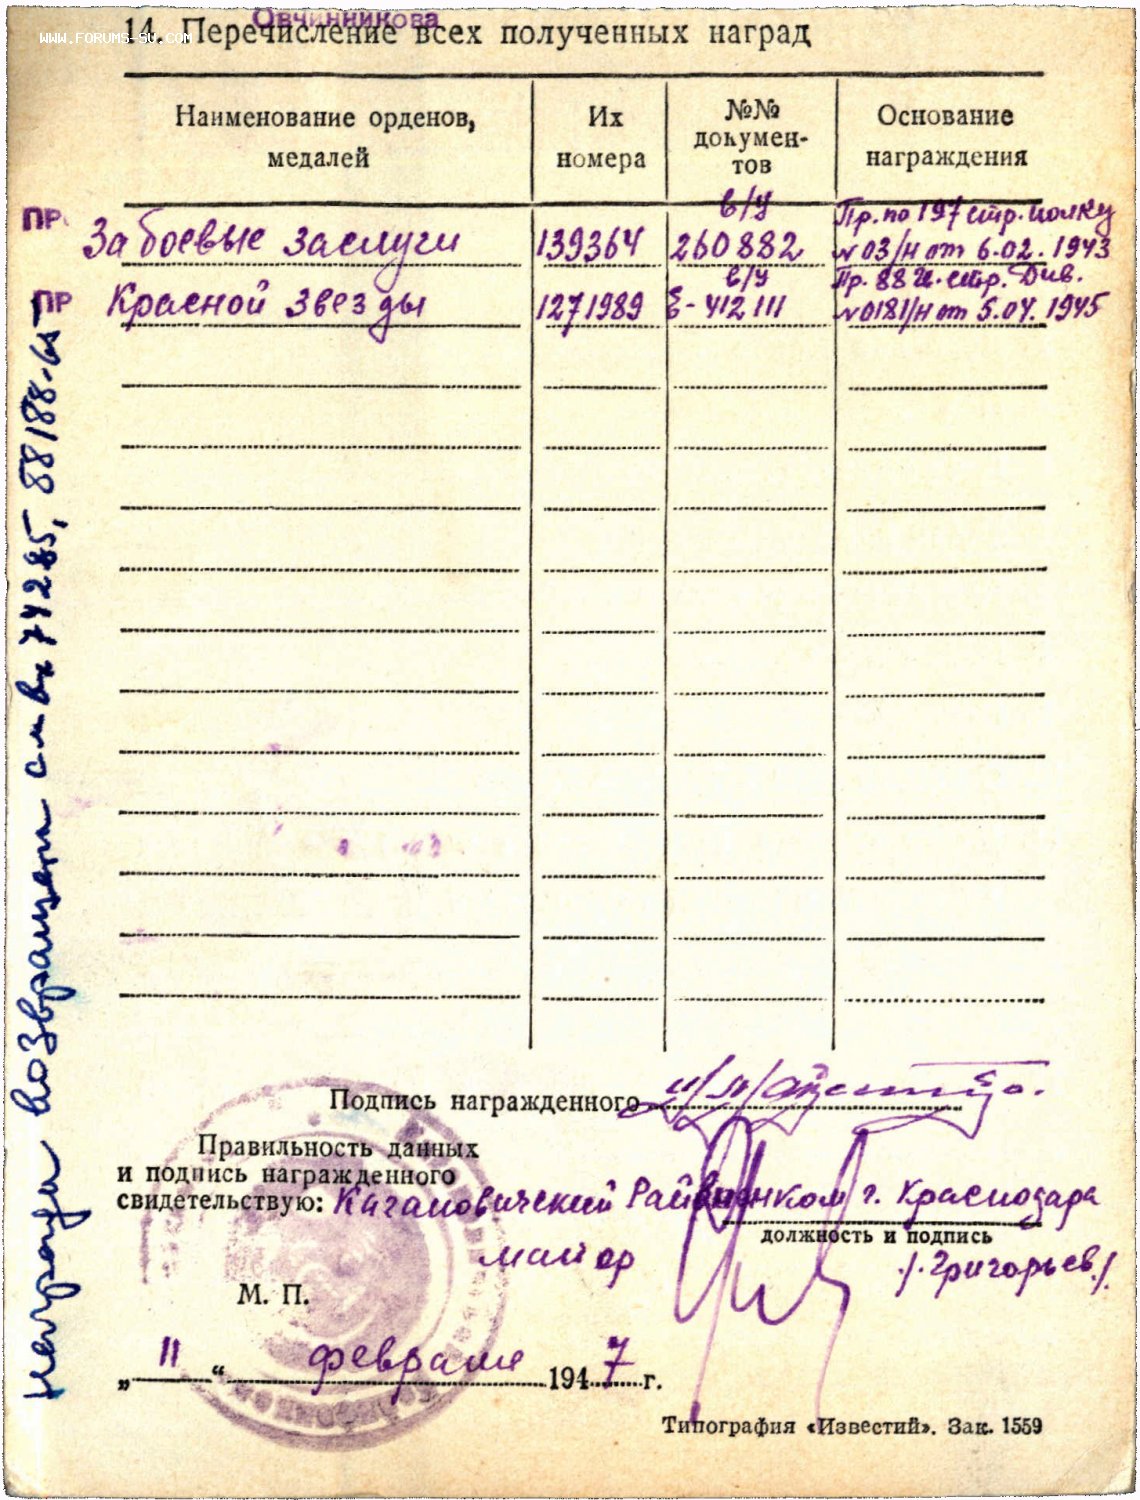 Овчинникова
WWW.FORUMS-SU.COM
14. Перечисление всех полученных наград
Наименование орденов, медалей
Их номера
№№ докумен-
тов
Основание награждения
ПР За боевые заслуги 139364 в/у 260882 Пр. по 197 стр. полку
№ 03/н от 6.02.1943
ПР Красной Звезды 1271989 в/у Е-412111 Пр. 88 й. стр. Див.
№ 0181/н от 5.04.1945
награда возвращена см вх 74285, 88188-65
Подпись награжденного
Правильность данных
и подпись награжденного
свидетельствую: Кагановичский Райвоенком г. Краснодара
должность и подпись
майор /.Григорьев./
М. П.
„11“ февраля 1947 г.
Типография «Известий». Зак. 1559